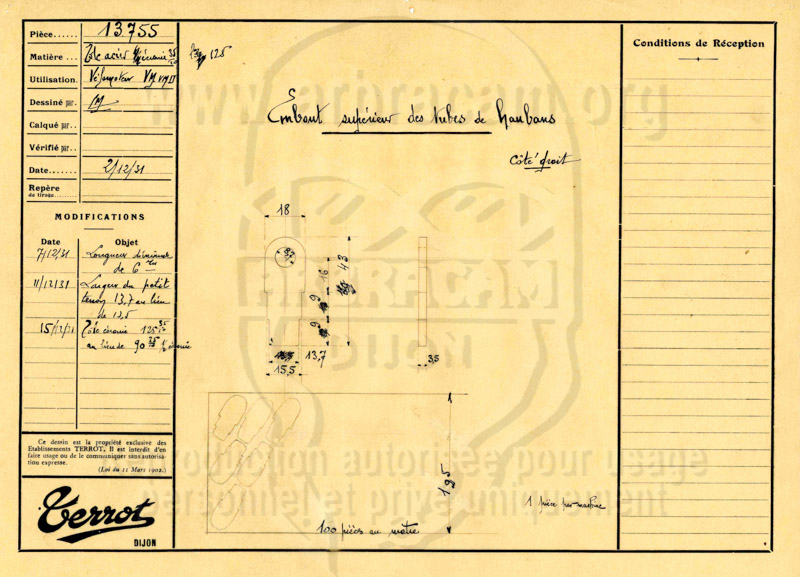 Pièce
13.755
Matière
Tôle acier
125
Utilisation
Vélomoteur VM VM II
Dessiné par
Calqué par
Vérifié par
Date
2/12/31
Repère
de tirage
MODIFICATIONS
Date Objet
7/12/31 Longueur diminuée
de 6 mm
11/12/31 Largeur du petit
tenon 13,7 au lieu
de 12,5
15/12/31 Tôle 125
au lieu de 90
Ce dessin est la propriété exclusive des
Etablissements TERROT. Il est interdit d'en
faire usage ou de le communiquer sans autorisa-
tion expresse.
(Loi du 11 Mars 1902.)
Terrot
DIJON
www.arbracam.org
Embout supérieur des tubes de haubans
Côté droit
18
16
43
9
9
13,7
15,5
3,5
ARBRACAM
DIJON
195
Reproduction autorisée pour usage
personnel et privé uniquement
1 pièce par machine
100 pièces au mètre
Conditions de Réception